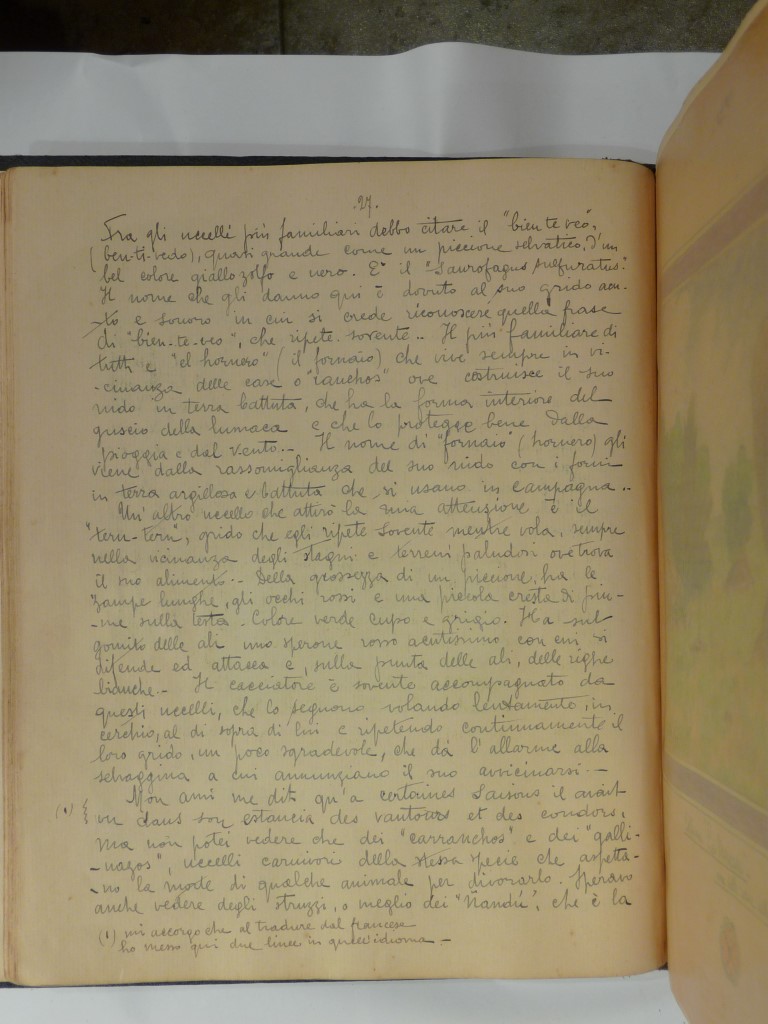 .97.
Fra gli uccelli più familiari debbo citare il "bien te veo",
(ben-ti-vedo), quasi grande come un piccione selvatico, d'un
bel colore giallo zolfo e nero. E' il "Saurofagus sulfuratus."
Il nome che gli danno qui è dovuto al suo grido acu-
-to e sonoro in cui si crede riconoscere quella frase
di "bien-te-veo", che ripete sovente.. Il più familiare di
tutti e "el hornero" (il fornaio) che vive sempre in vi-
-cinanza delle case o "ranchos" ove costruisce il suo
nido in terra battuta, che ha la forma interiore del
guscio della lumaca e che lo protegge bene dalla
pioggia e dal vento.- Il nome di "fornaio" (hornero) gli
viene dalla rassomiglianza del suo nido con i forni
in terra argillosa e battuta che si usano in campagna..
Un'altro uccello che attirò la mia attenzione è il
"teru-teru", grido che egli ripete sovente mentre vola, sempre
nella vicinanza degli stagni e terreni paludosi ove trova
il suo alimento.- Della grossezza di un piccione, ha le
zampe lunghe, gli occhi rossi e una piccola cresta di piu-
-me sulla testa. Colore verde cupo e grigio. Ha sul
gomito delle ali uno sperone rosso acutissimo con cui si
difende ed attacca e, sulla punta delle ali, delle righe
bianche.- Il cacciatore è sovente accompagnato da
questi uccelli, che lo seguono volando lentamente, in
cerchio, al di sopra di lui e ripetendo continuamente il
loro grido, un poco sgradevole, che dà l'allarme alla
selvaggina a cui annunziano il suo avvicinarsi.-
Mon ami me dit qu'a certaines saisons il avait
(1) vu dans son estancia des vautours et des condors,
ma non potei vedere che dei "carranchos" e dei "galli-
-nazos", uccelli carnivori della stessa specie che aspetta-
-no la morte di qualche animale per divorarlo. Speravo
anche vedere degli struzzi, o meglio dei "Ñandù", che è la
(1) mi accorgo che al tradurre dal francese
ho messo qui due linee in quell'idioma.-